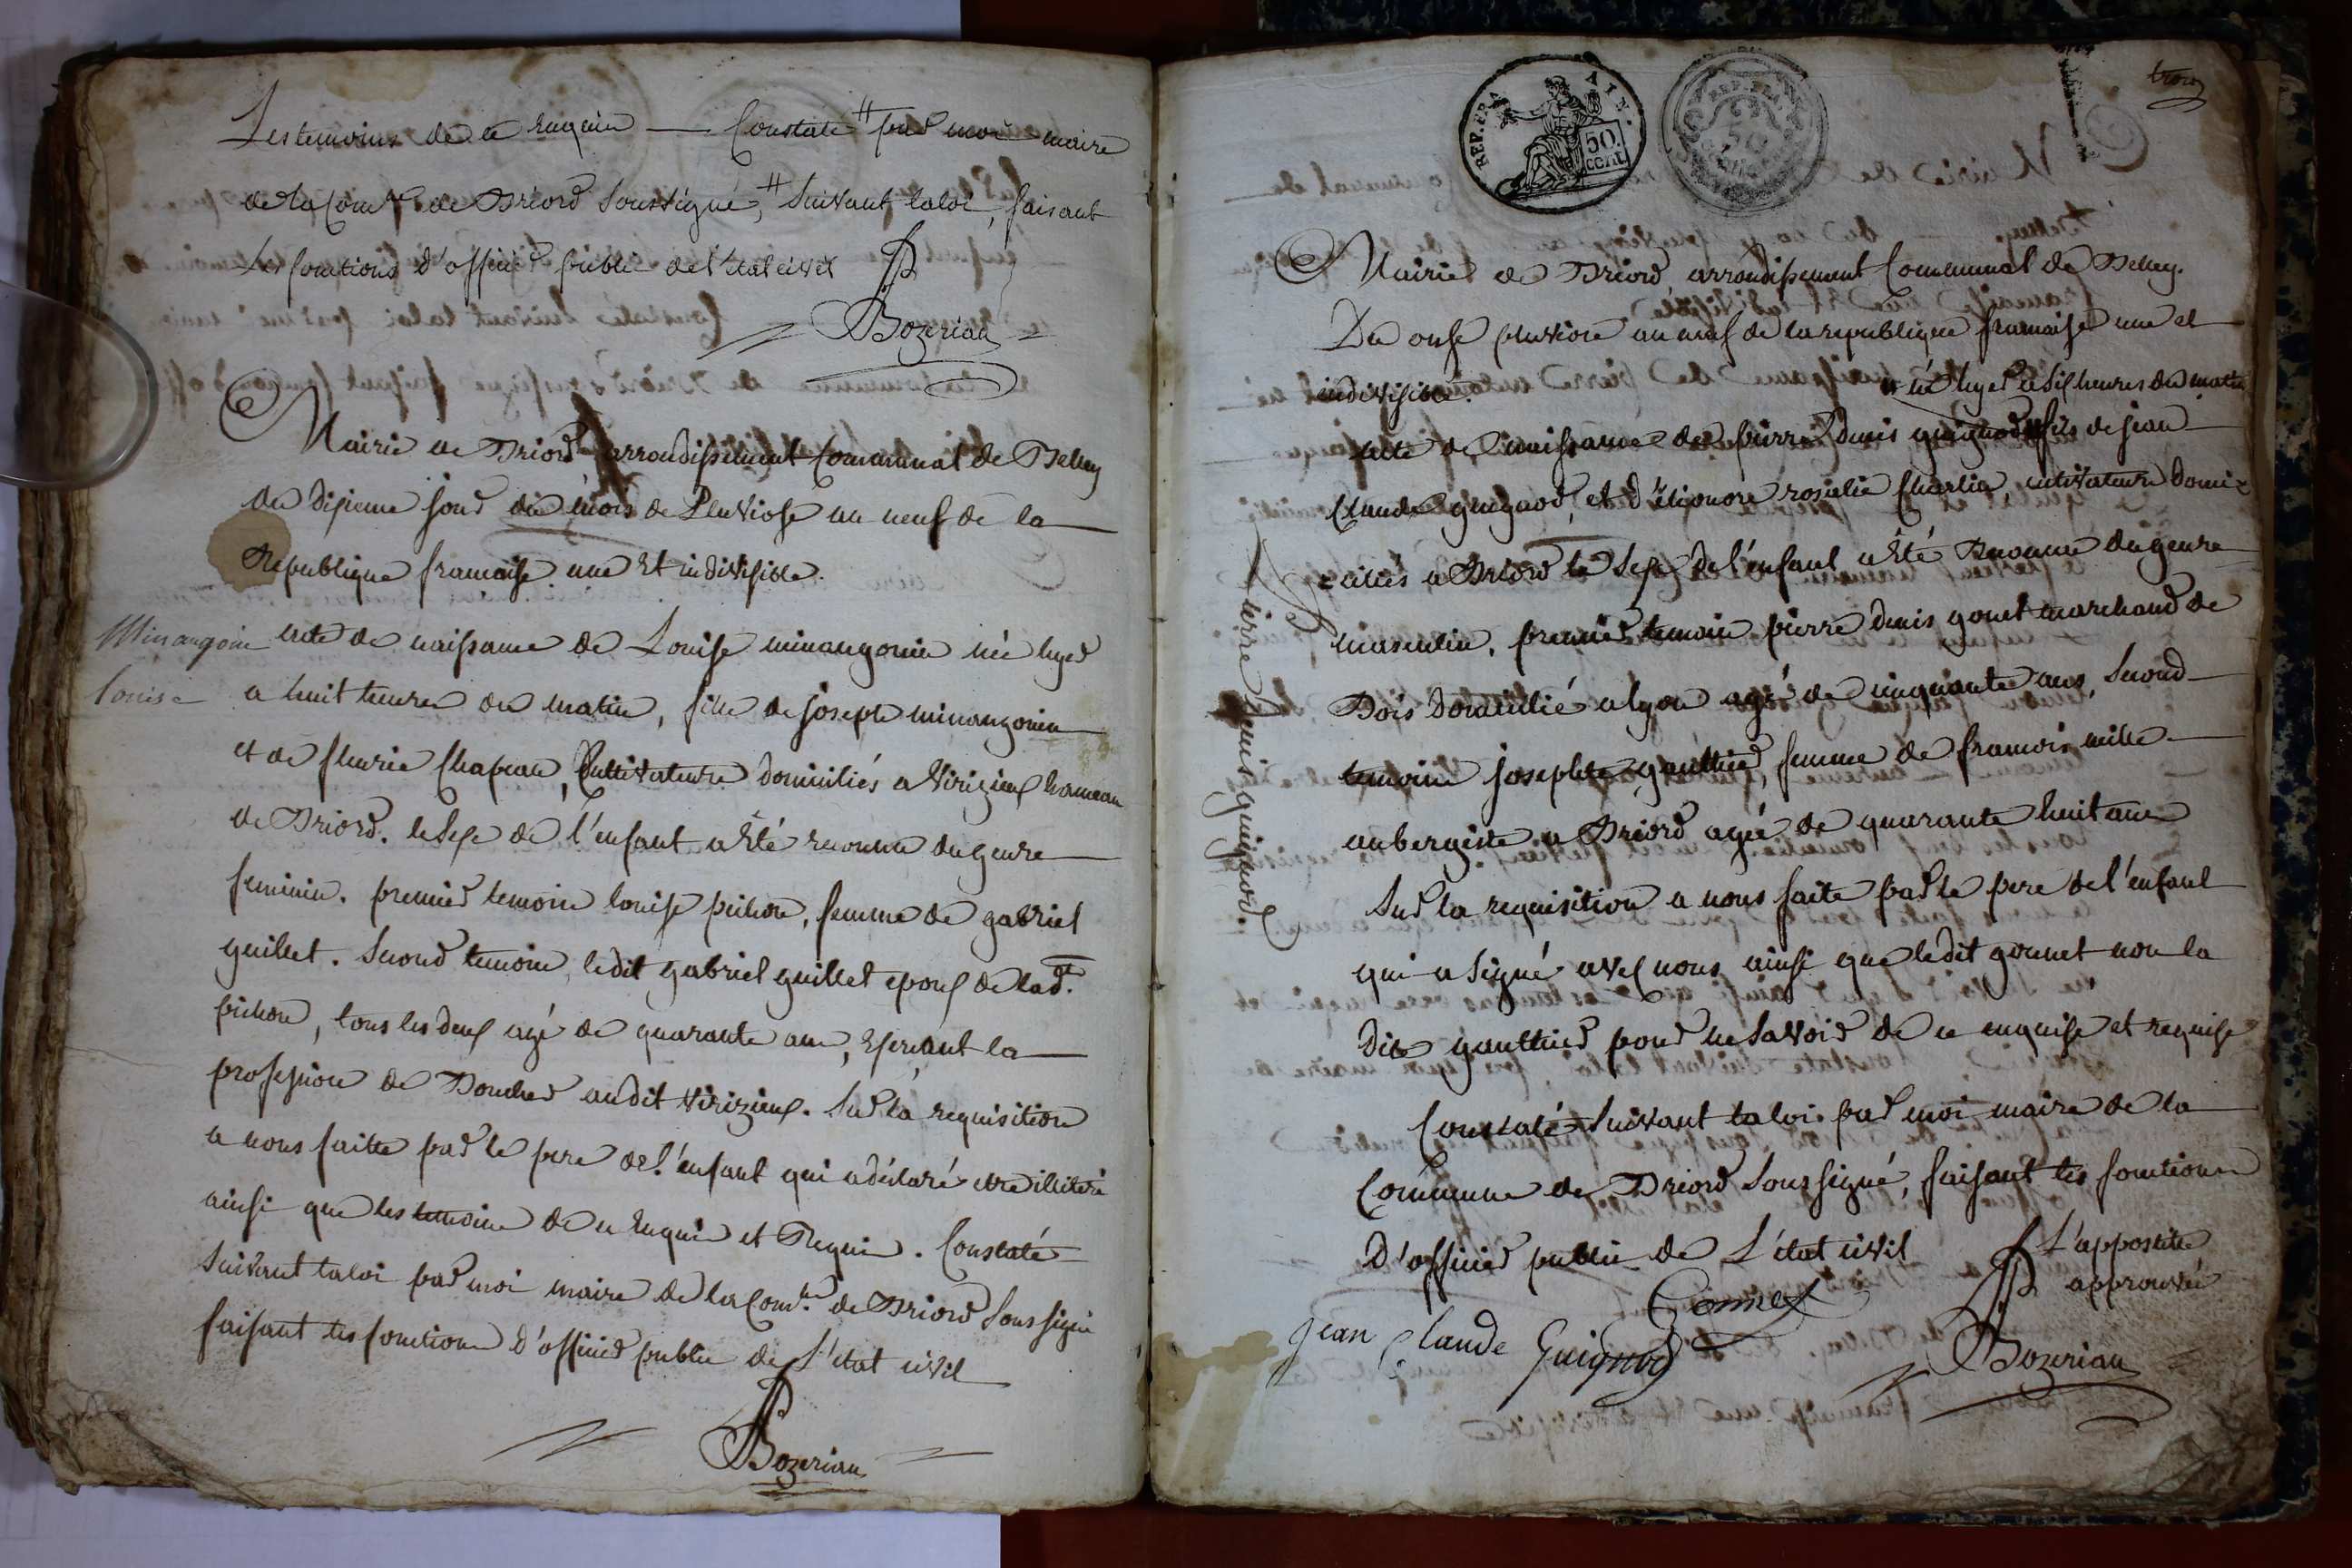 Les temoins de ce Enquis — Constaté # par moi maire
de la Comne de Briord Soussigné, # Suivant la loi, faisant
Les fonctions d'officier public de l'etat civil
Bozerian
Mairie de Briord, arrondissement Communal de Belley
du disieme jour du mois de Pluviose an neuf de la
Republique francaise une Et indivisible.
Minangoin
Louise
acte de naissance de Louise minangoin née hyer
a huit heures du matin, fille de joseph minangoin
et de fleurie Chapeau, Cultivateurs domiciliés a Virizieux hameau
de Briord. le Sexe de l'enfant a Eté reconnu du genre
feminin. premier temoin louise pichon, femme de gabriel
guillet. Second temoin, ledit gabriel guillet epoux de lad.te
pichon, tous les deux agé de quarante ans, Exercant la
profession de Boucher audit Virizieux. Sur la requisition
a nous faitte par le pere de l'enfant qui a déclaré etre illiteré
ainsi que les temoins de ce Enquis et Requis. Constaté
Suivant la loi par moi maire de la Comne de Briord Soussigné
faisant les fonctions d'officier public de L'etat civil
Bozerian
REP. FRA. AIN.
50. cent.
trois
Mairie de Briord, arrondissement Communal de Belley.
Du onse pluviose an neuf de la republique francaise une et
indivisible.
# né hyer a six heures du matin
acte de naissance de pierre Denis guignod # fils de jean
Claude guignod, et d'Elionore rosalie Charlin, cultivateurs domi=
=ciliés a Briord le Sexe de l'enfant a Eté Reconnu du genre
masculin. premier temoin pierre denis gonet marchand de
Bois domicilié a lyon agé de cinquante ans, Second
temoin josephte gauthier, femme de francois mille
aubergiste a Briord agée de quarante huit ans
Sur la requisition a nous faite par le pere de l'enfant
qui a Signé avec nous ainsi que ledit gonnet non la
dite gauthier pour ne Savoir de ce enquise et requise
Constaté Suivant la loi par moi maire de la
Commune de Briord Soussigné, faisant les fonctions
D'officier public de L'état civil
L'appostille
approuvée
Gonnet
Jean Claude Guignod
Bozerian
Pierre Denis guignod.